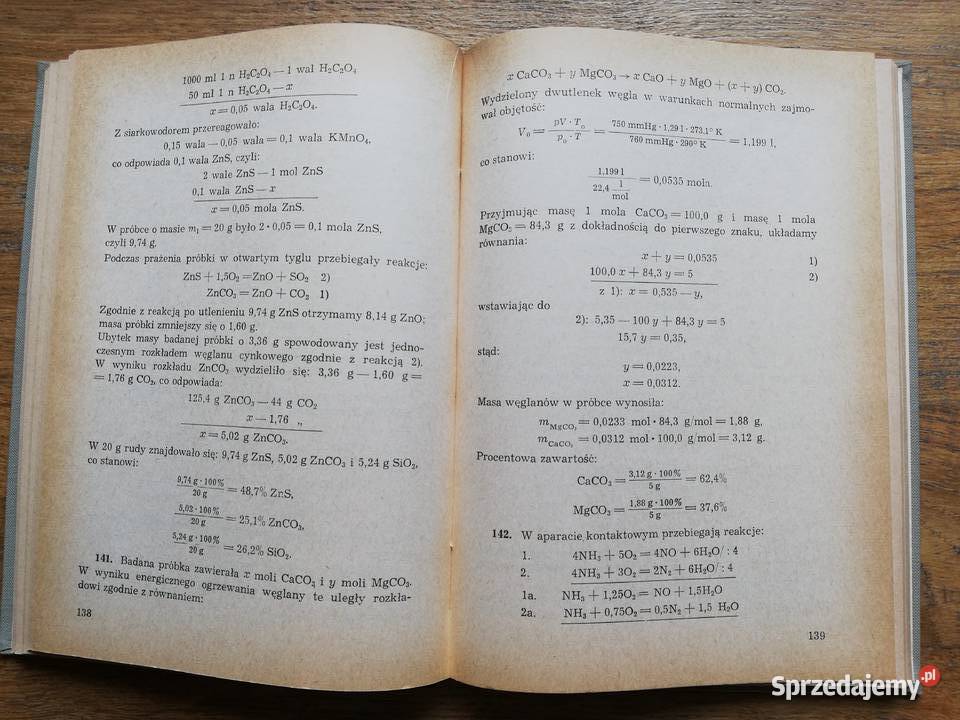 1000 ml 1 n H₂C₂O₄ — 1 wal H₂C₂O₄
50 ml 1 n H₂C₂O₄ — x
x = 0,05 wala H₂C₂O₄.
Z siarkowodorem przereagowało:
0,15 wala — 0,05 wala = 0,1 wala KMnO₄,
co odpowiada 0,1 wala ZnS, czyli:
2 wale ZnS — 1 mol ZnS
0,1 wala ZnS — x
x = 0,05 mola ZnS.
W próbce o masie m₁ = 20 g było 2 · 0,05 = 0,1 mola ZnS,
czyli 9,74 g.
Podczas prażenia próbki w otwartym tyglu przebiegały reakcje:
ZnS + 1,5O₂ = ZnO + SO₂ 2)
ZnCO₃ = ZnO + CO₂ 1)
Zgodnie z reakcją po utlenieniu 9,74 g ZnS otrzymamy 8,14 g ZnO;
masa próbki zmniejszy się o 1,60 g.
Ubytek masy badanej próbki o 3,36 g spowodowany jest jedno-
czesnym rozkładem węglanu cynkowego zgodnie z reakcją 2).
W wyniku rozkładu ZnCO₃ wydzieliło się: 3,36 g — 1,60 g =
= 1,76 g CO₂, co odpowiada:
125,4 g ZnCO₃ — 44 g CO₂
x — 1,76 „
x = 5,02 g ZnCO₃.
W 20 g rudy znajdowało się: 9,74 g ZnS, 5,02 g ZnCO₃ i 5,24 g SiO₂,
co stanowi:
9,74 g · 100% / 20 g = 48,7% ZnS,
5,02 · 100% / 20 g = 25,1% ZnCO₃,
5,24 g · 100% / 20 g = 26,2% SiO₂.
141. Badana próbka zawierała x moli CaCO₃ i y moli MgCO₃.
W wyniku energicznego ogrzewania węglany te uległy rozkła-
dowi zgodnie z równaniem:
138
x CaCO₃ + y MgCO₃ → x CaO + y MgO + (x + y) CO₂.
Wydzielony dwutlenek węgla w warunkach normalnych zajmo-
wał objętość:
V₀ = pV · T₀ / p₀ · T = 750 mmHg · 1,29 l · 273,1° K / 760 mmHg · 290° K = 1,199 l,
co stanowi:
1,199 l / 22,4 l/mol = 0,0535 mola.
Przyjmując masę 1 mola CaCO₃ = 100,0 g i masę 1 mola
MgCO₃ = 84,3 g z dokładnością do pierwszego znaku, układamy
równania:
x + y = 0,0535 1)
100,0 x + 84,3 y = 5 2)
z 1): x = 0,535 — y,
wstawiając do
2): 5,35 — 100 y + 84,3 y = 5
15,7 y = 0,35,
stąd:
y = 0,0223,
x = 0,0312.
Masa węglanów w próbce wynosiła:
m MgCO₃ = 0,0233 mol · 84,3 g/mol = 1,88 g,
m CaCO₃ = 0,0312 mol · 100,0 g/mol = 3,12 g.
Procentowa zawartość:
CaCO₃ = 3,12 g · 100% / 5 g = 62,4%
MgCO₃ = 1,88 g · 100% / 5 g = 37,6%
142. W aparacie kontaktowym przebiegają reakcje:
1. 4NH₃ + 5O₂ = 4NO + 6H₂O/ : 4
2. 4NH₃ + 3O₂ = 2N₂ + 6H₂O/ : 4
1a. NH₃ + 1,25O₂ = NO + 1,5H₂O
2a. NH₃ + 0,75O₂ = 0,5N₂ + 1,5 H₂O
139
Sprzedajemy.pl